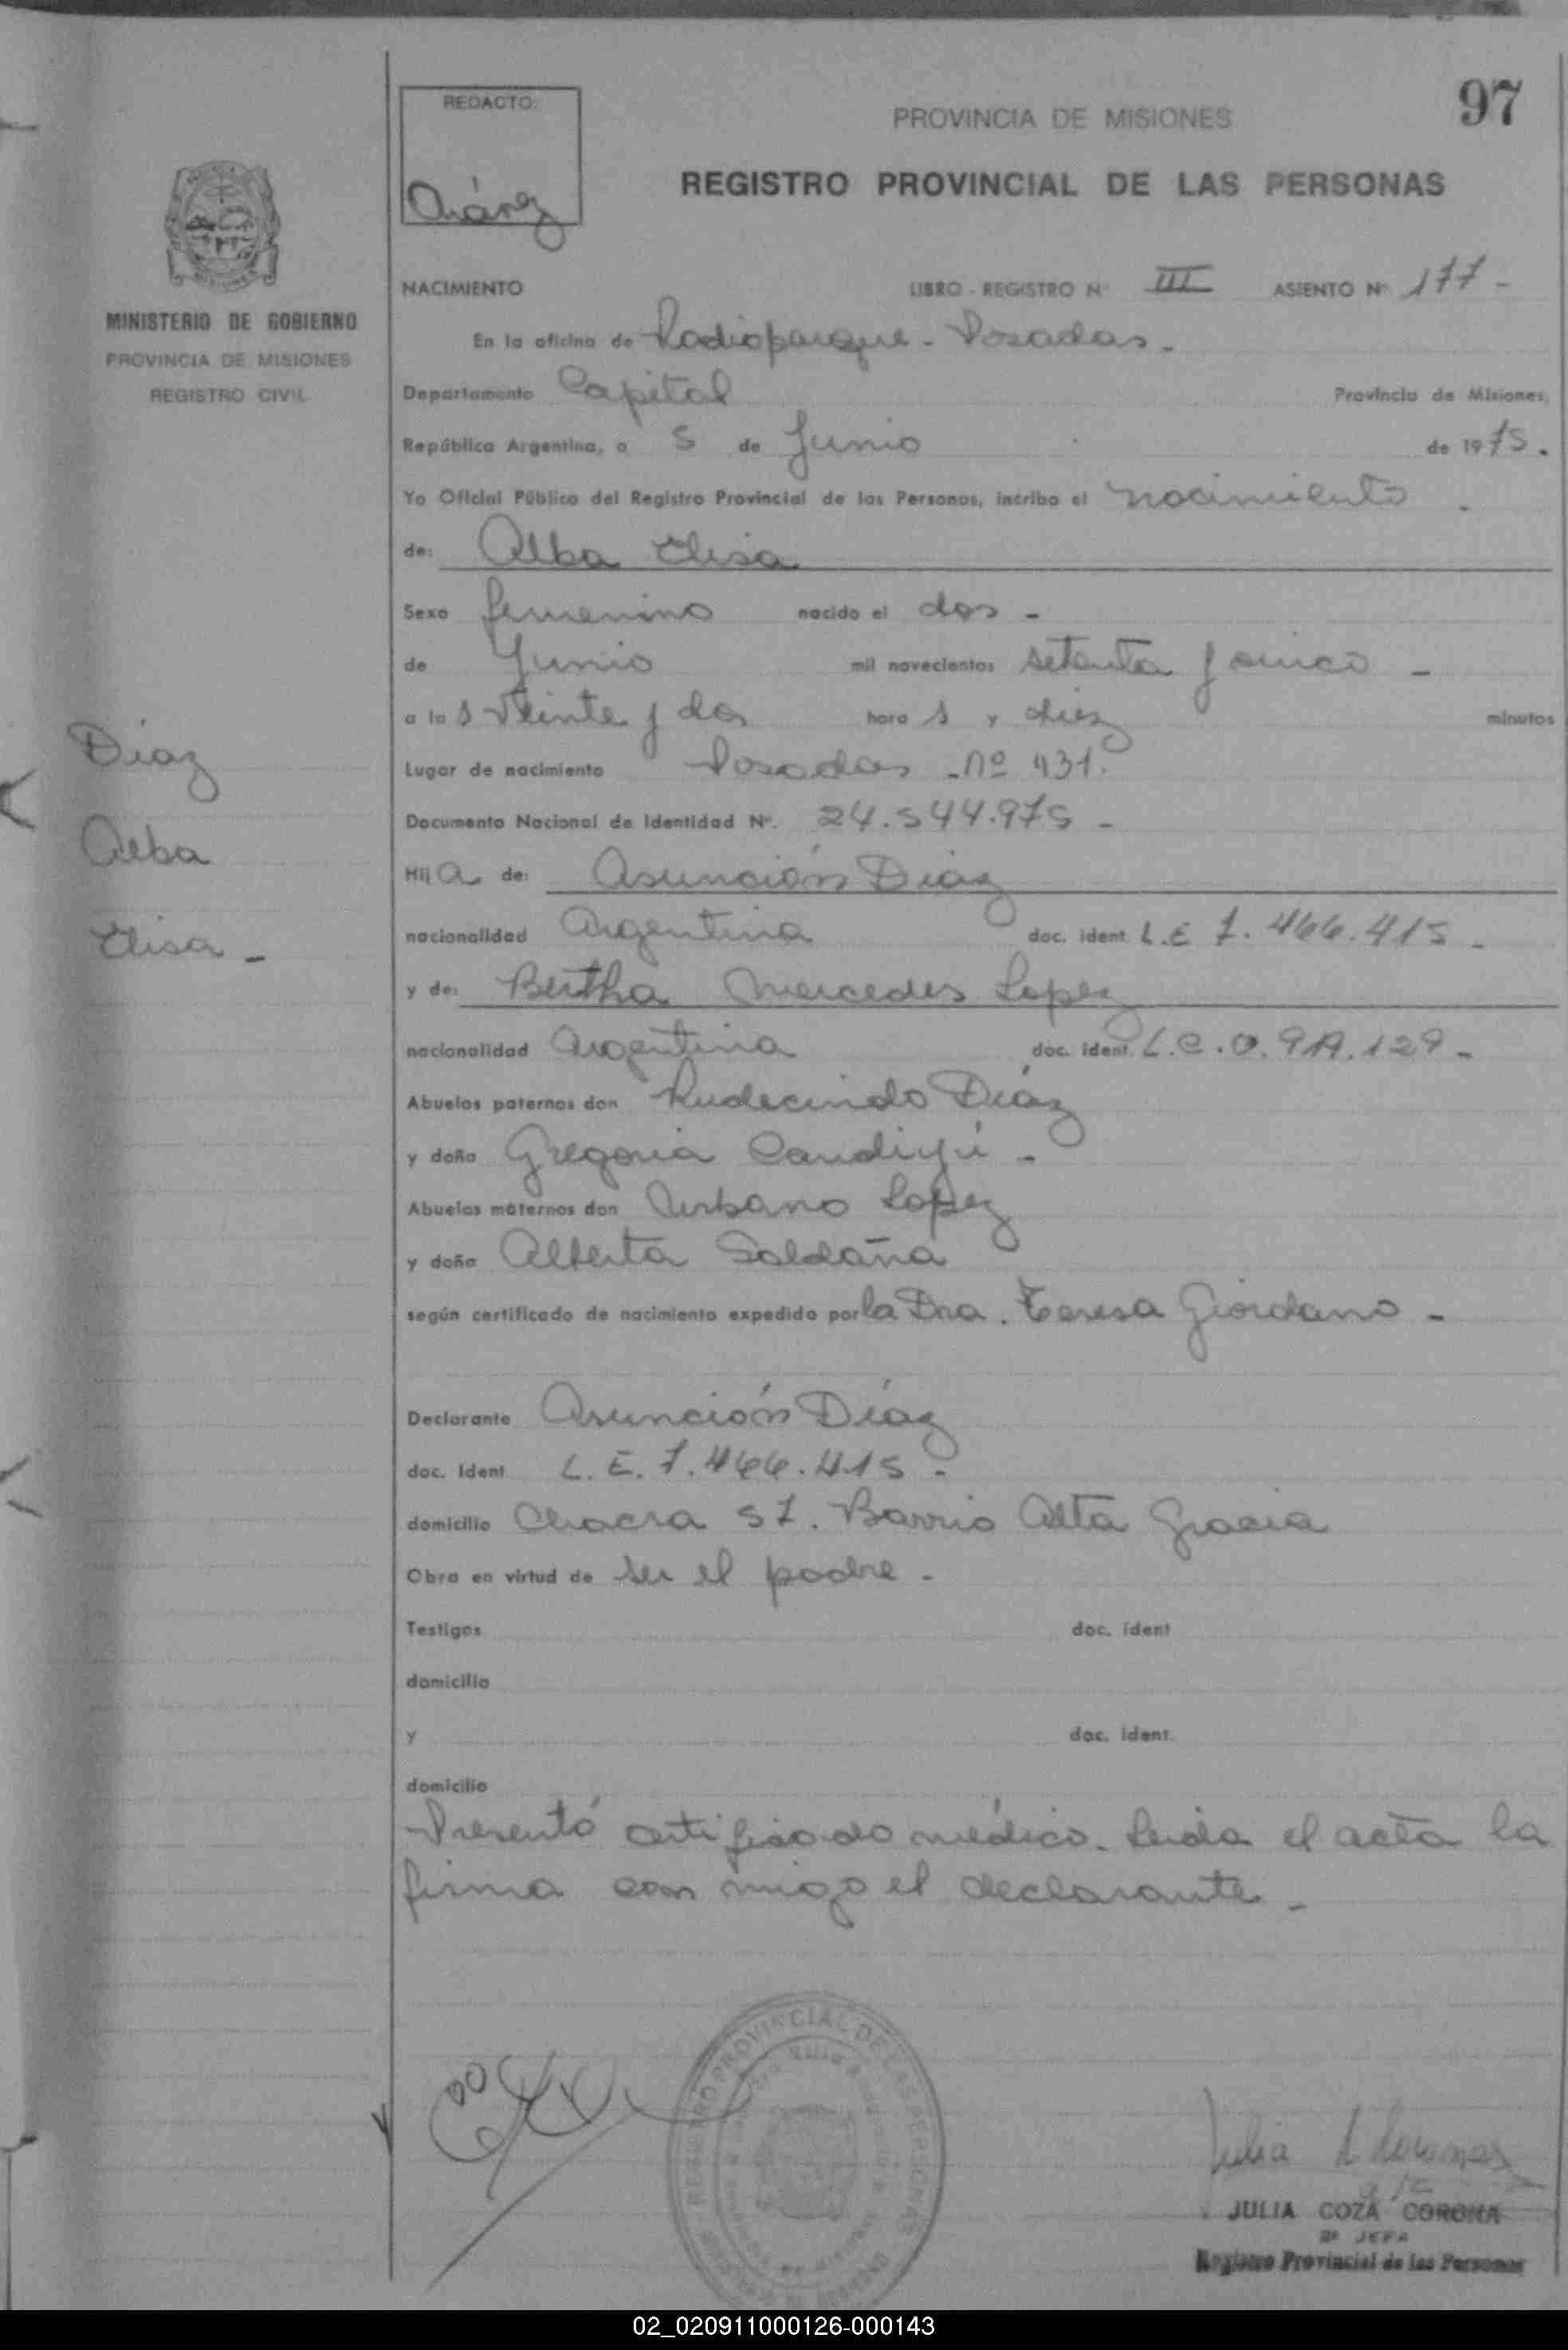 REDACTO:
PROVINCIA DE MISIONES
97
REGISTRO PROVINCIAL DE LAS PERSONAS
MINISTERIO DE GOBIERNO
PROVINCIA DE MISIONES
REGISTRO CIVIL
NACIMIENTO LIBRO - REGISTRO Nº III ASIENTO Nº 177 -
En la oficina de Radioparque - Posadas.
Departamento Capital Provincia de Misiones,
República Argentina, a 5 de Junio de 1975.
Yo Oficial Público del Registro Provincial de las Personas, incribo el nacimiento
de: Alba Elisa
Sexo femenino nacido el dos -
de Junio mil novecientos setenta y cinco -
a las veinte y dos hora s y diez minutos
Lugar de nacimiento Posadas - nº 431.
Documento Nacional de Identidad Nº. 24.544.975 -
Hija de: Asunción Díaz
nacionalidad Argentina doc. ident. L.E 7.466.415 -
y de: Bertha Mercedes Lopez
nacionalidad Argentina doc. ident. L.C.
Abuelos paternos don Rudecindo Díaz
y doña Gregoria Candiyú -
Abuelos maternos don Urbano Lopez
y doña Alberta Saldaña
según certificado de nacimiento expedido por la Dra. Teresa Giordano -
Declarante Asunción Díaz
doc. Ident L.E. 7.466.415 -
domicilio Chacra 57. Barrio Alta Gracia
Obra en virtud de ser el padre -
Testigos doc. ident
domicilio
y doc. ident.
domicilio
Presentó certificado médico. Leída el acta la
firma con migo el declarante -
Díaz
Alba
Elisa -
REGISTRO PROVINCIAL DE LAS PERSONAS
Julia
JULIA COZA CORONA
2ª JEFA
Registro Provincial de las Personas
02_020911000126-000143